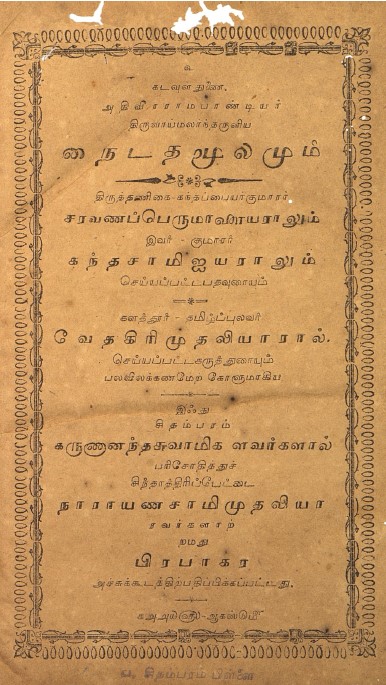 உ
கடவுள் துணை.
அதிவீரராமபாண்டியர்
திருவாய்மலர்ந்தருளிய
நைடதமூலமும்
திருத்தணிகை-கந்தப்பையர்குமாரர்
சரவணப்பெருமாளையராலும்
இவர் - குமாரர்
கந்தசாமிஐயராலும்
செய்யப்பட்டபதவுரையும்
களத்தூர் - தமிழ்ப்புலவர்
வேதகிரிமுதலியாரால்.
செய்யப்பட்டகருத்துரையும்
இஃது
சிதம்பரம்
கருணானந்தசுவாமிக ளவர்களால்
பரிசோதித்துச்
சிந்தாத்திரிப்பேட்டை
நாராயணசாமிமுதலியா
ரவர்களாற்
றமது
பிரபாகர
அச்சுக்கூடத்திற்பதிப்பிக்கப்பட்டது.
வ. சிதம்பரம் பிள்ளை